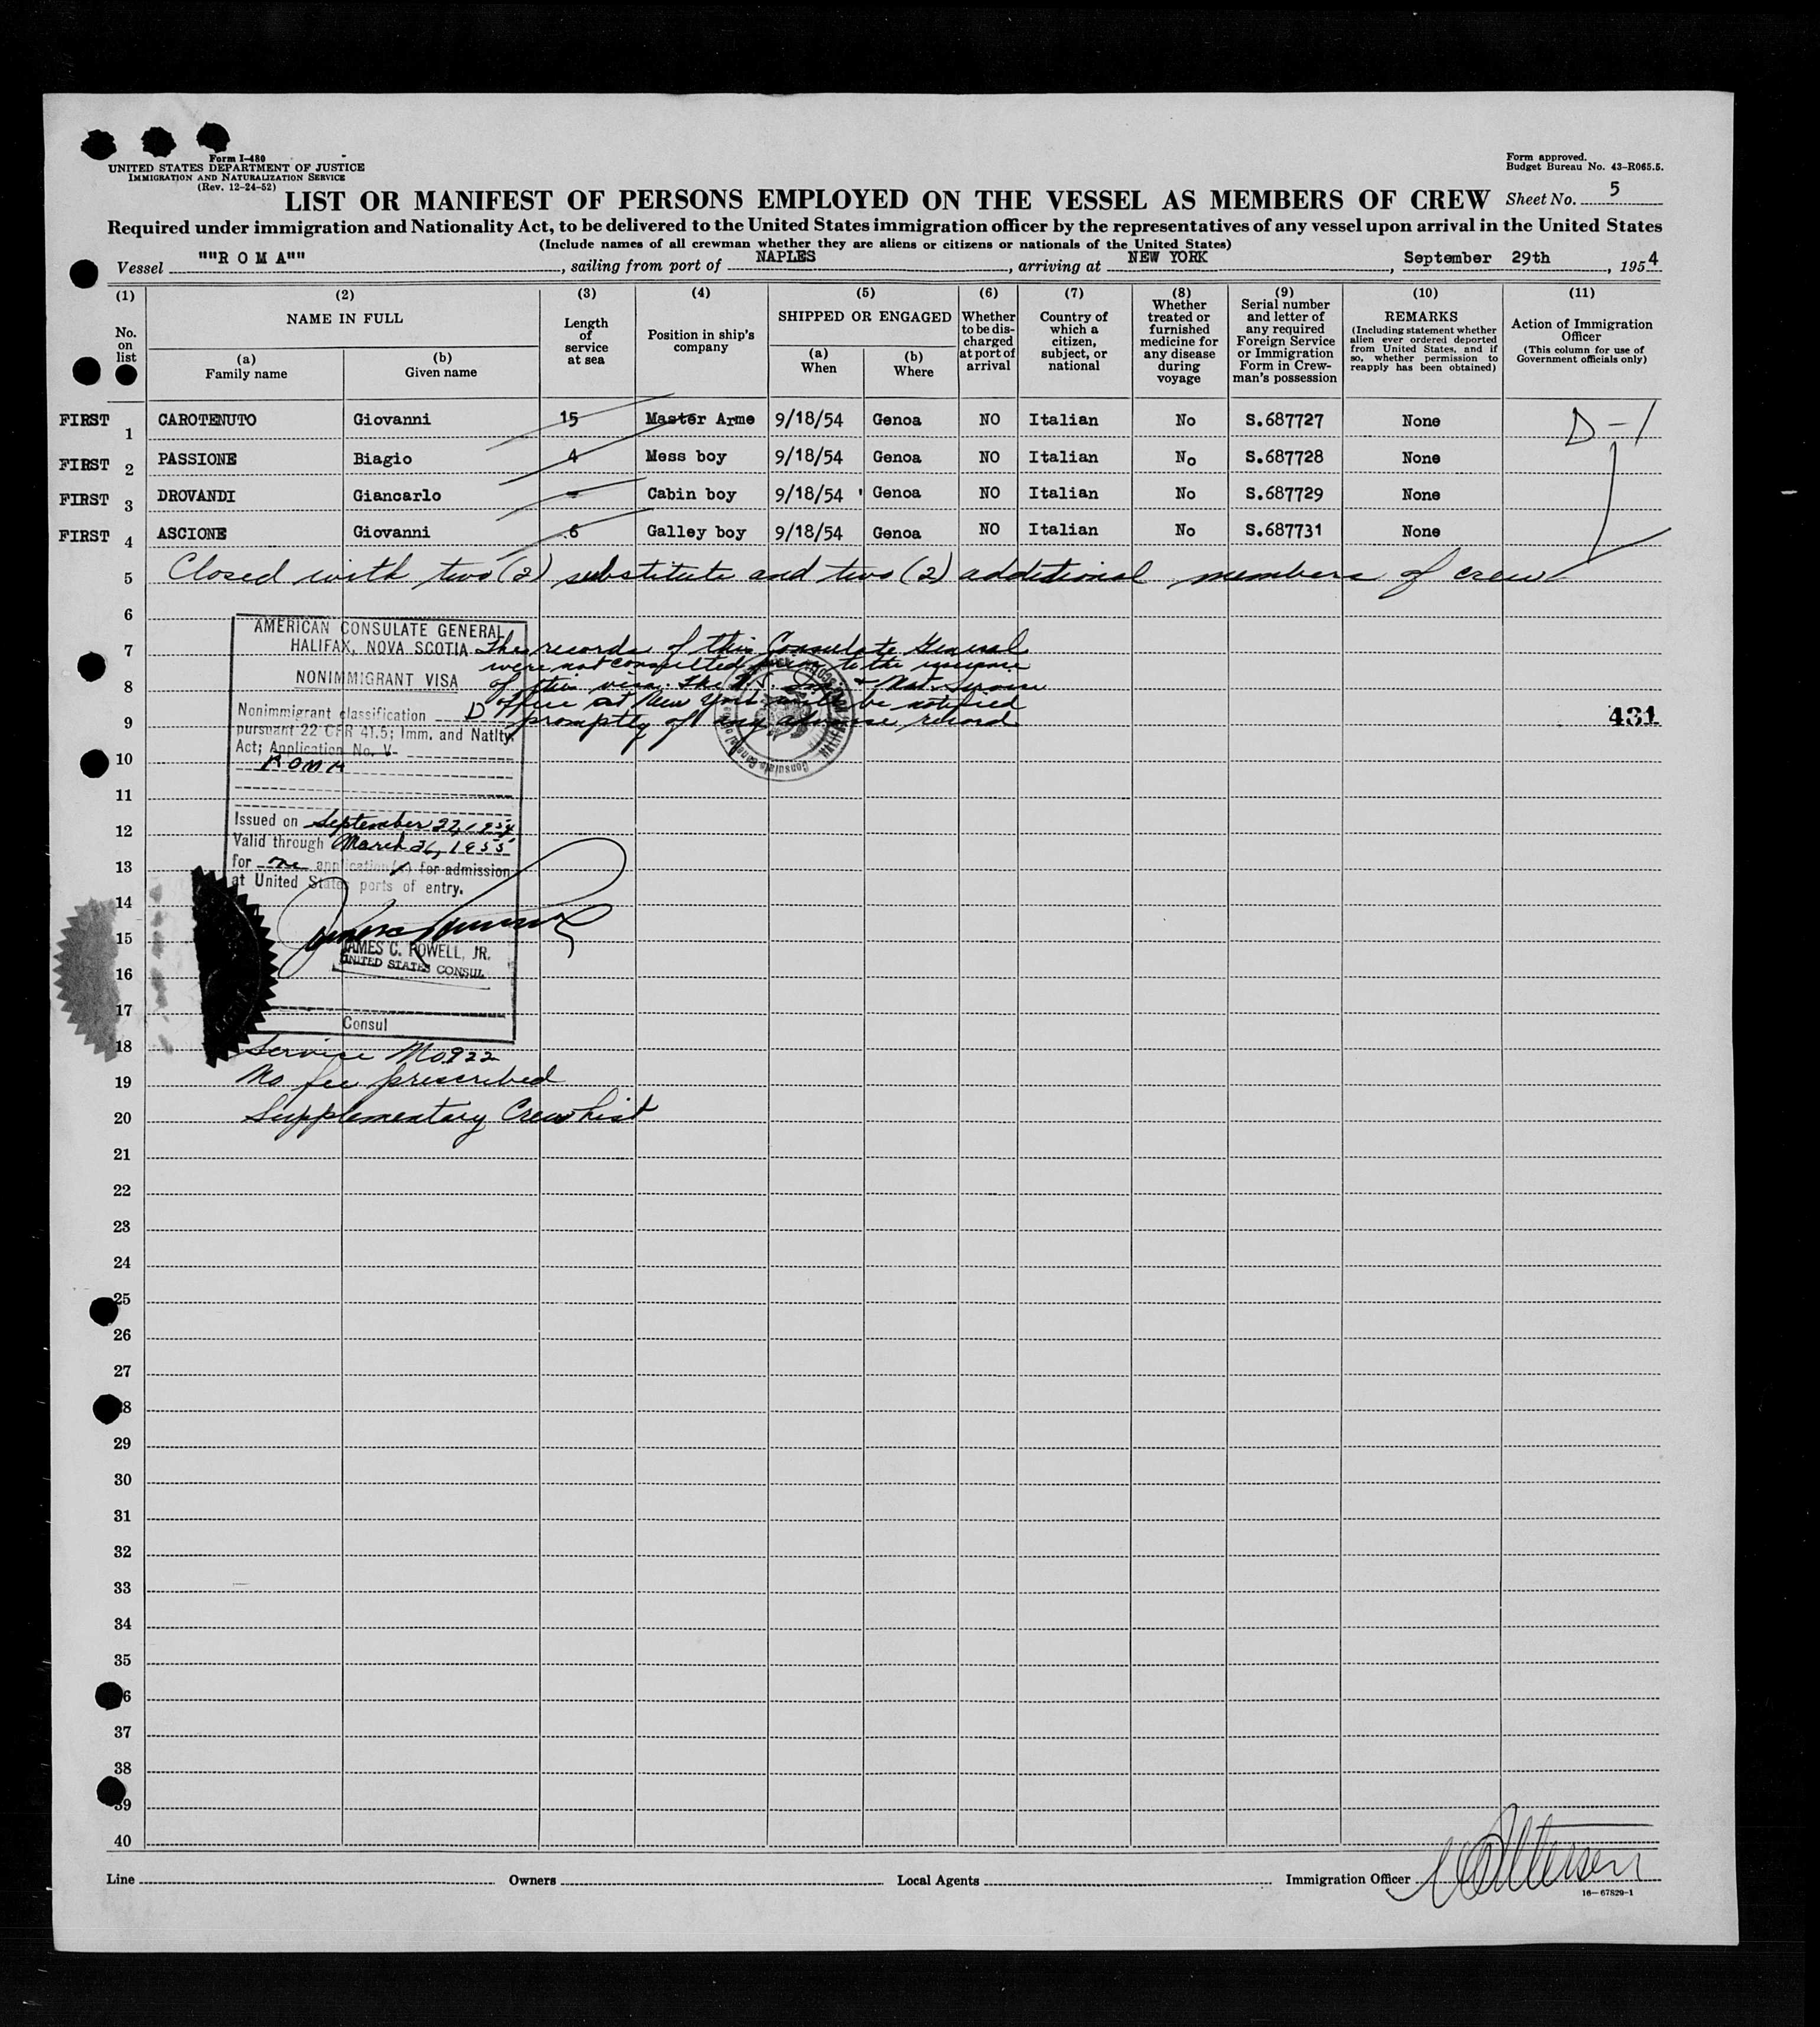 Form I-480
UNITED STATES DEPARTMENT OF JUSTICE
IMMIGRATION AND NATURALIZATION SERVICE
(Rev. 12-24-52)
Form approved.
Budget Bureau No. 43-R065.5.
LIST OR MANIFEST OF PERSONS EMPLOYED ON THE VESSEL AS MEMBERS OF CREW Sheet No. 5
Required under immigration and Nationality Act, to be delivered to the United States immigration officer by the representatives of any vessel upon arrival in the United States
(Include names of all crewman whether they are aliens or citizens or nationals of the United States)
Vessel ""R O M A"", sailing from port of NAPLES, arriving at NEW YORK, September 29th, 1954
(1) (2) (3) (4) (5) (6) (7) (8) (9) (10) (11)
No. on list
NAME IN FULL
(a) Family name
(b) Given name
Length of service at sea
Position in ship's company
SHIPPED OR ENGAGED
(a) When
(b) Where
Whether to be discharged at port of arrival
Country of which a citizen, subject, or national
Whether treated or furnished medicine for any disease during voyage
Serial number and letter of any required Foreign Service or Immigration Form in Crewman's possession
REMARKS
(Including statement whether alien ever ordered deported from United States, and if so, whether permission to reapply has been obtained)
Action of Immigration Officer
(This column for use of Government officials only)
FIRST 1 CAROTENUTO Giovanni 15 Master Arme 9/18/54 Genoa NO Italian No S.687727 None D-1
FIRST 2 PASSIONE Biagio 4 Mess boy 9/18/54 Genoa NO Italian No S.687728 None
FIRST 3 DROVANDI Giancarlo - Cabin boy 9/18/54 Genoa NO Italian No S.687729 None
FIRST 4 ASCIONE Giovanni .6 Galley boy 9/18/54 Genoa NO Italian No S.687731 None
5 Closed with two (2) substitute and two (2) additional members of crew
6
AMERICAN CONSULATE GENERAL
HALIFAX, NOVA SCOTIA
NONIMMIGRANT VISA
Nonimmigrant classification D
pursuant 22 CFR 41.5; Imm. and Natlty.
Act; Application No. V-
ROMA
Issued on September 27, 1954
Valid through March 26, 1955
for one application(s) for admission
at United States ports of entry.
JAMES C. POWELL, JR.
UNITED STATES CONSUL
Consul
The records of this Consulate General
were not consulted prior to the issuance
of this visa. The U.S. Imm & Nat. Service
office at New York will be notified
promptly of any adverse record
431
7
8
9
10
11
12
13
14
15
16
17
18 Service No. 922
19 No fee prescribed
20 Supplementary Crew List
21
22
23
24
25
26
27
28
29
30
31
32
33
34
35
36
37
38
39
40
Line Owners Local Agents Immigration Officer
16-67829-1